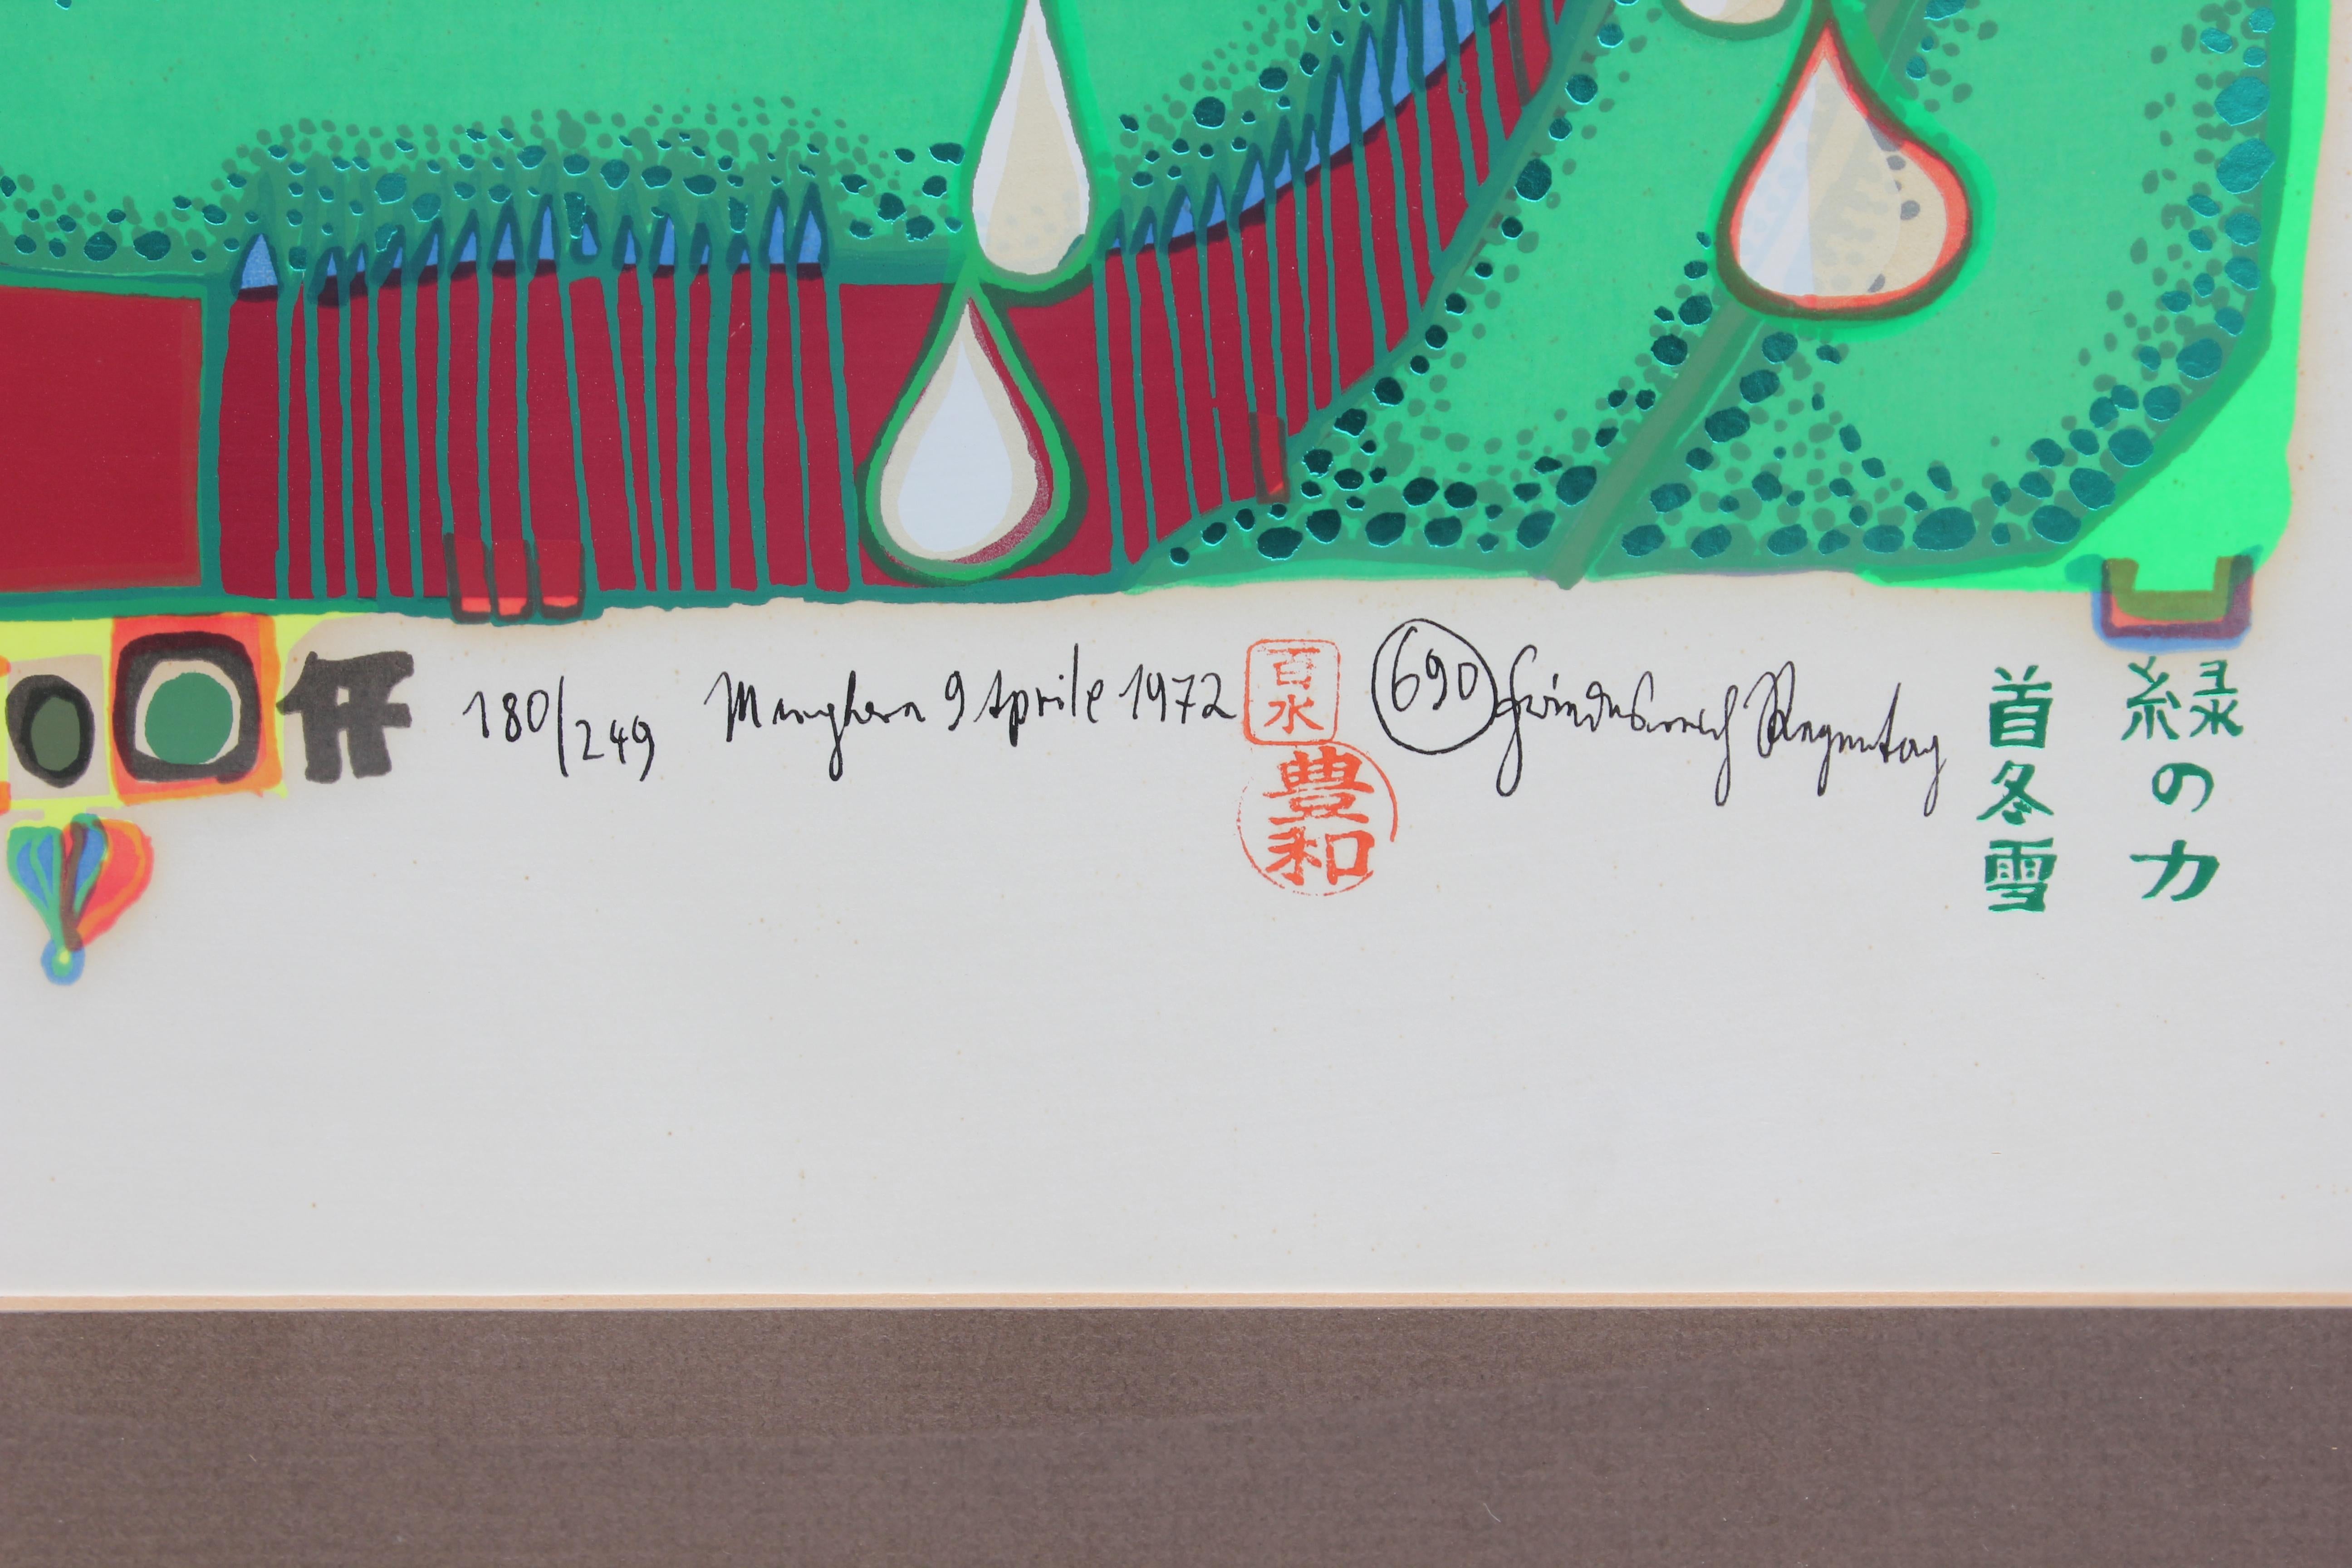 180/249 Marghera 9 Aprile 1972
百水
豊和
690 Friedensreich Regentag
緑の力
首冬雪